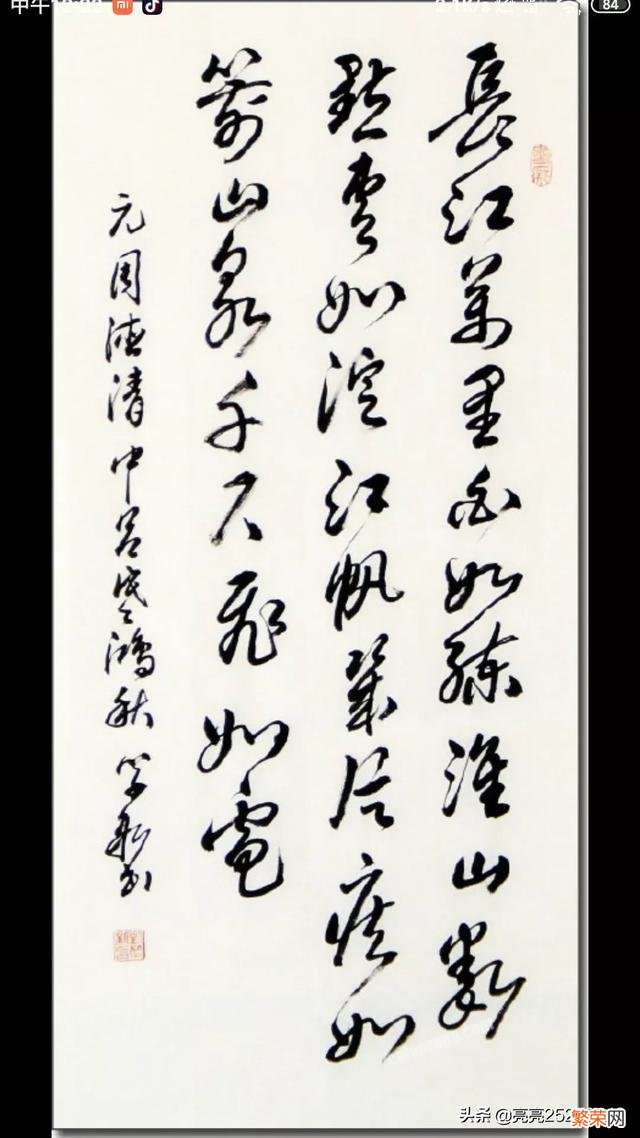 84
長江萬里白如練淮山數
點青如淀江帆幾片疾如
箭山泉千尺飛如電
元周德清中吕塞鴻秋
头条 @亮亮252
繁荣网